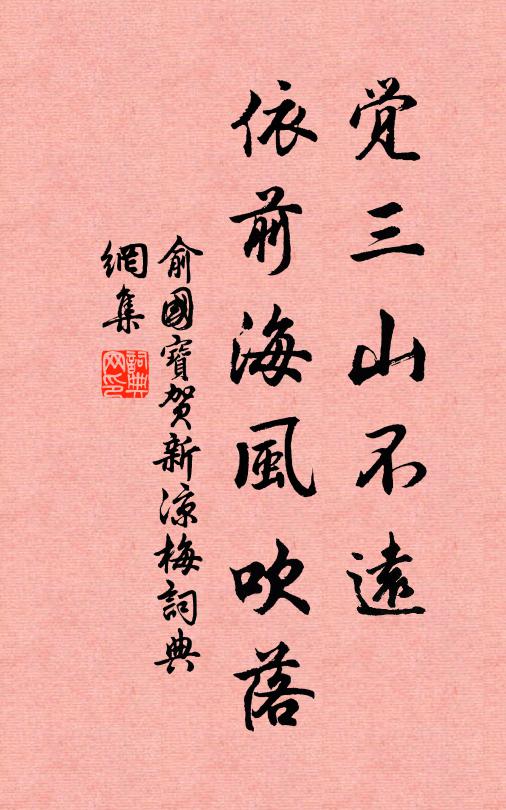 觉三山不遠
依前海風吹落
俞國寳贺新凉梅詞典
網集
詞典
网印